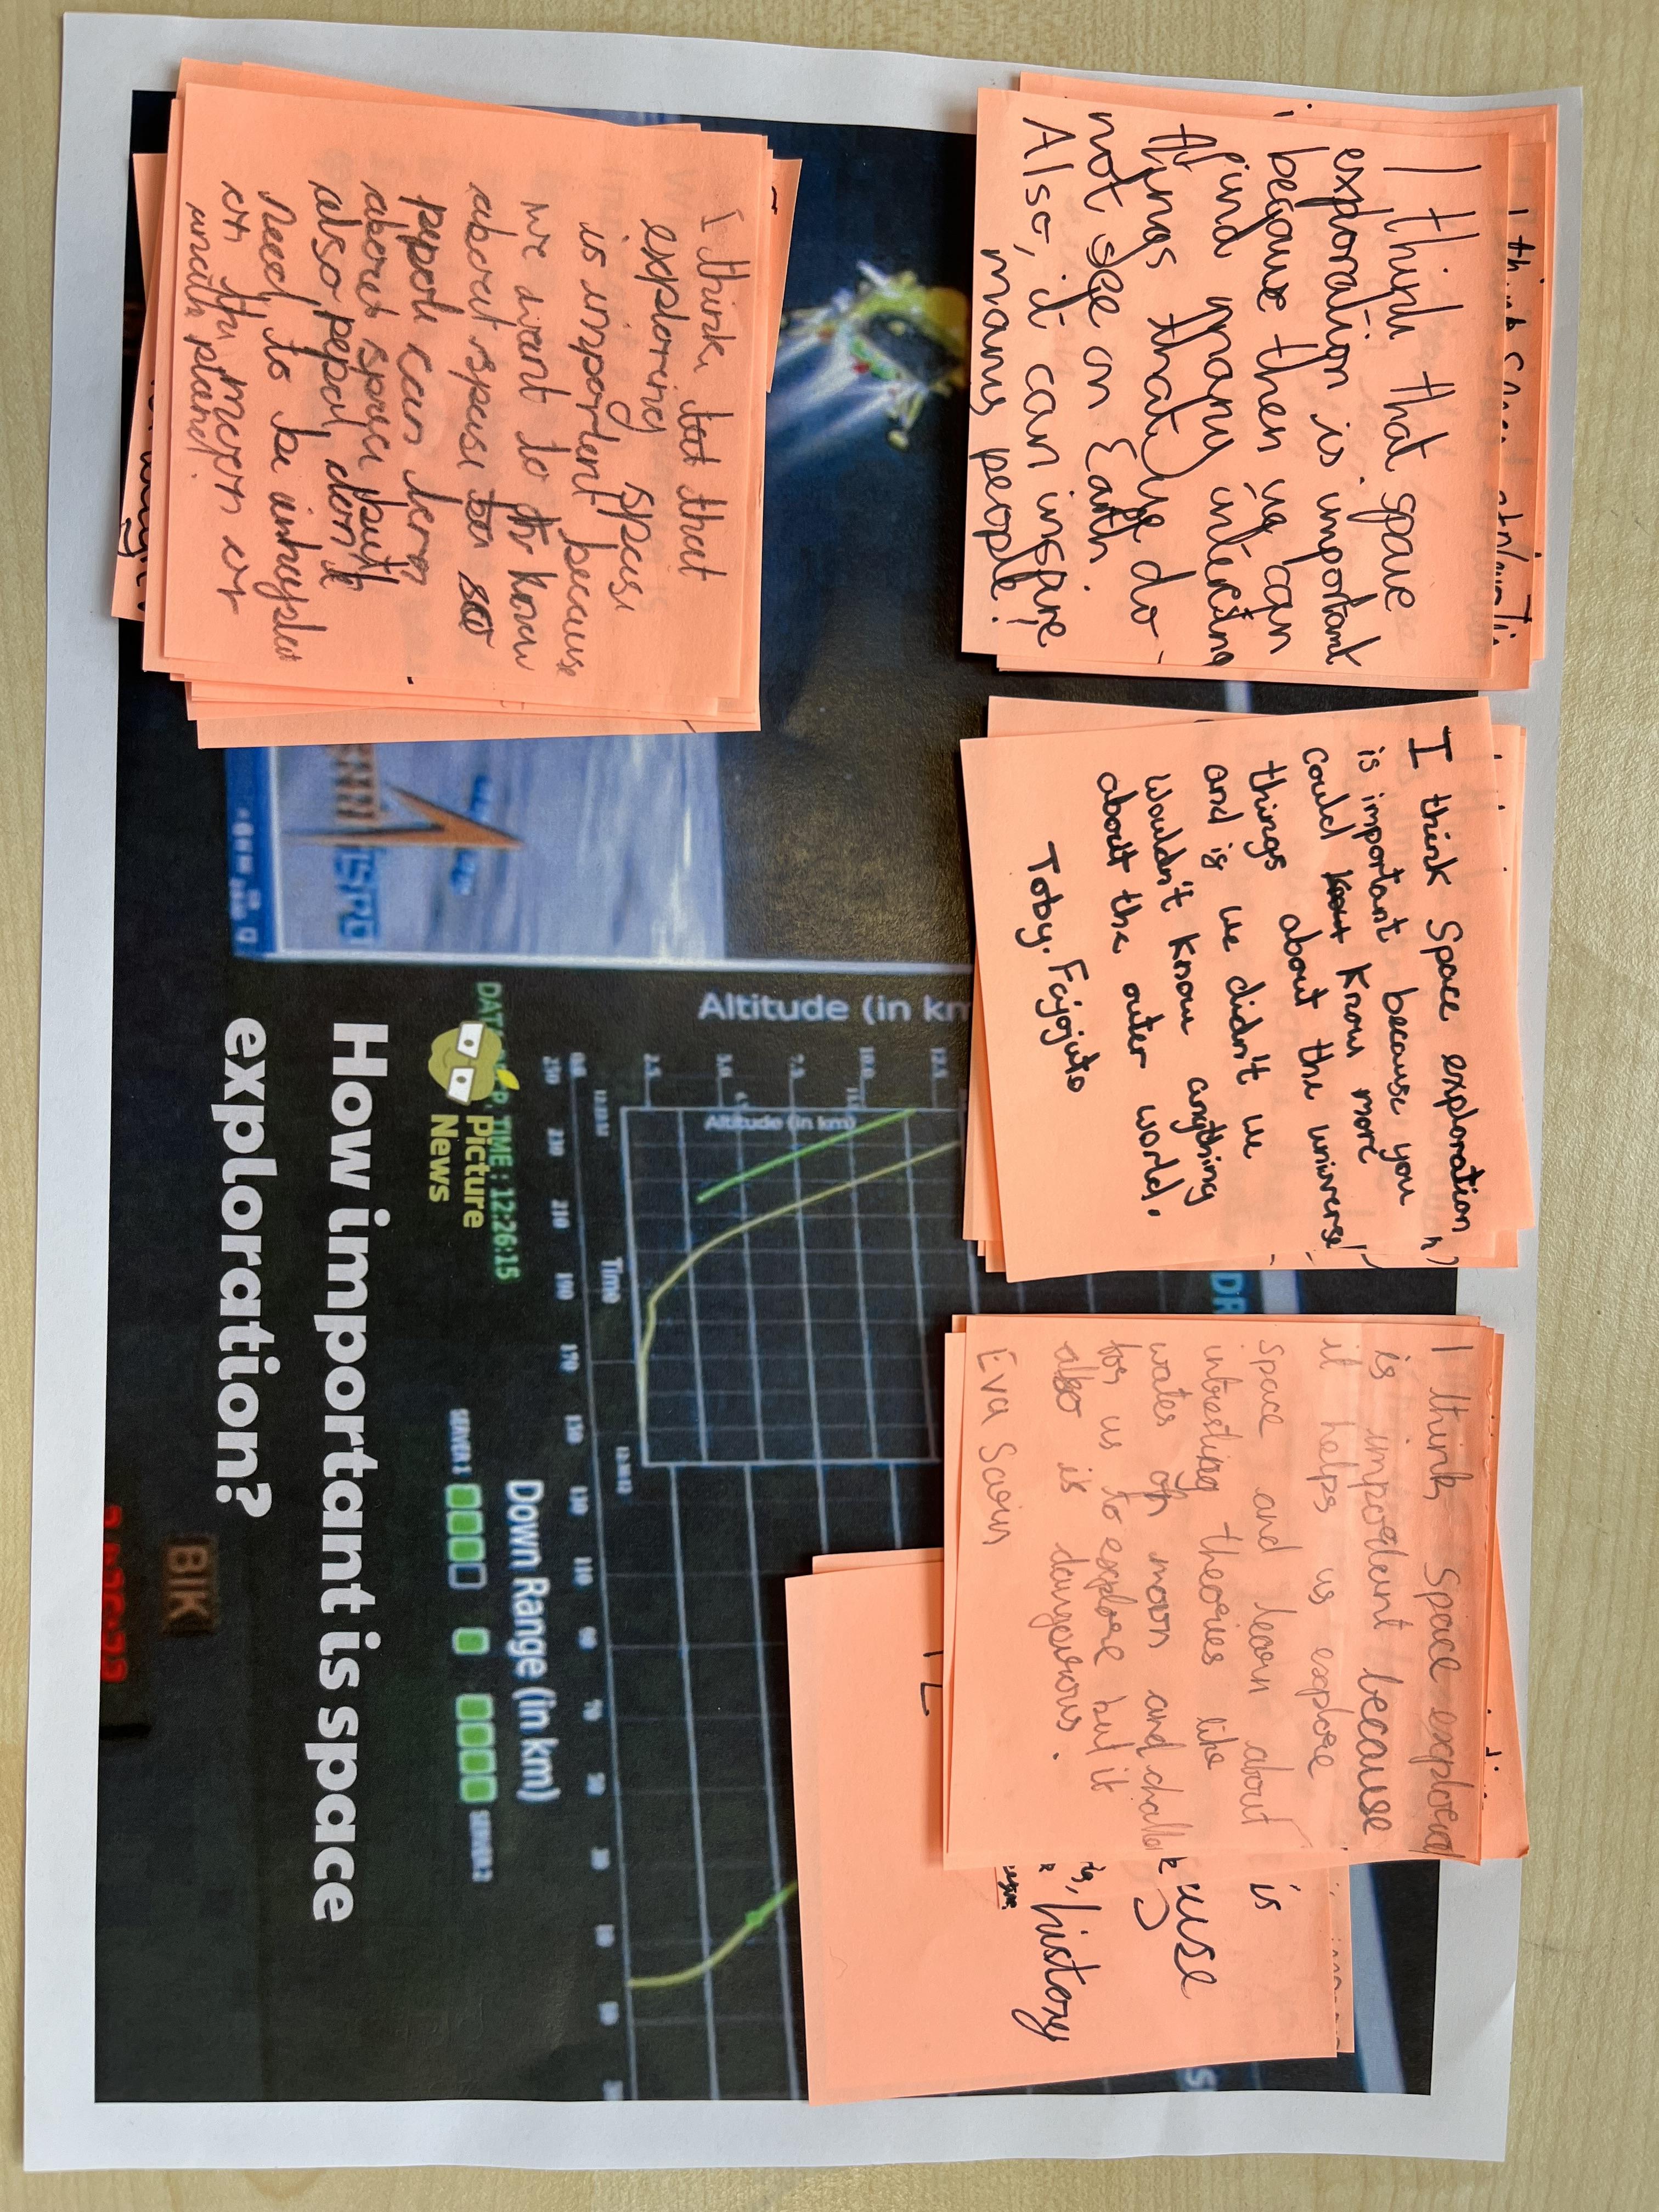 I think that space
exploration is important
because then we can
find many intersting
things that we do
not see on Earth.
Also, it can inspire
many people!
I think Space exploration
is important because you
could know more
things about the universe
and is we didn't we
wouldn't know anything
about the outer world.
Toby. Fajojuto
I think Space explorin
is important because
it helps us explore
space and learn about
intresting theories like
water on moon and challe
for us to explore but it
also is dangourous.
Eva Soin
is
use
history
I think that
exploring spase
is importent because
we want to know
about spase
pepole can lern
about space but
also pepol don't
need to be
on the moon or
Altitude (in km
Altitude (in km)
Time
TIME: 12:26:15
Down Range (in km)
SERVER 1
SERVER 2
Picture
News
How important is space
exploration?
BIK